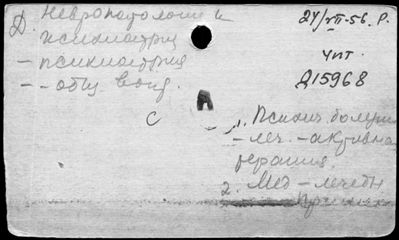 Д. Невропатологии и
психиатрия
– психиатрия
– – общ вонд.
24/VII-56. Р.
Чит.
Д15968
С
1. Психич. болезни
– леч. – активная
терапия.
2. Мед – лечебн